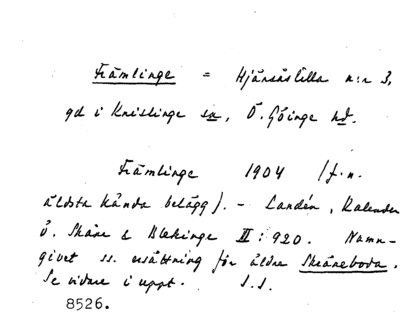 Främlinge = Hjärsåslilla n:r 3,
gd i Knislinge sn, Ö. Göinge hd.
Främlinge 1904 (f.n.
äldsta kända belägg). - Landén, Kalender
ö. Skåne & Blekinge II: 920. Namn-
givet ss. ersättning för äldre Skräneboda.
Se vidare i uppt. S.S.
8526.